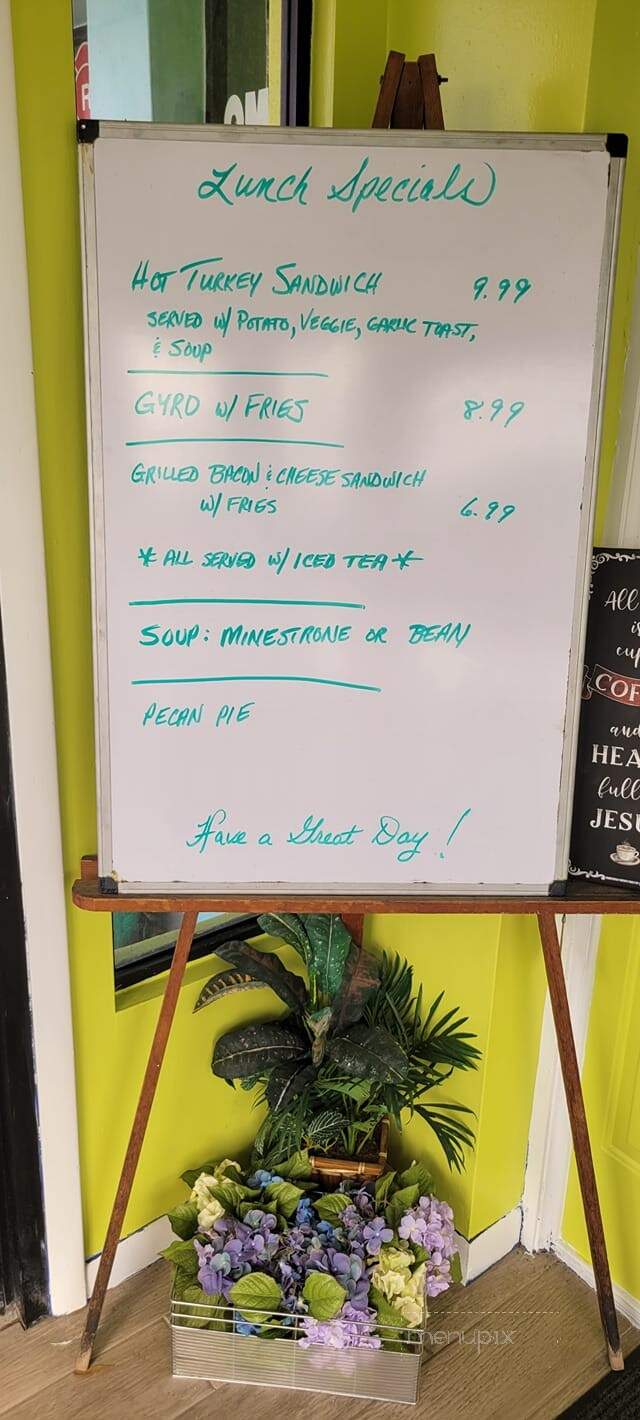 Lunch Specials
HOT TURKEY SANDWICH 9.99
SERVED W/ POTATO, VEGGIE, GARLIC TOAST,
& SOUP
GYRO W/ FRIES 8.99
GRILLED BACON & CHEESE SANDWICH
W/ FRIES 6.99
* ALL SERVED W/ ICED TEA *
SOUP: MINESTRONE OR BEAN
PECAN PIE
Have a Great Day!
All
is
cup
COF
and
HEA
full
JESU
menupix